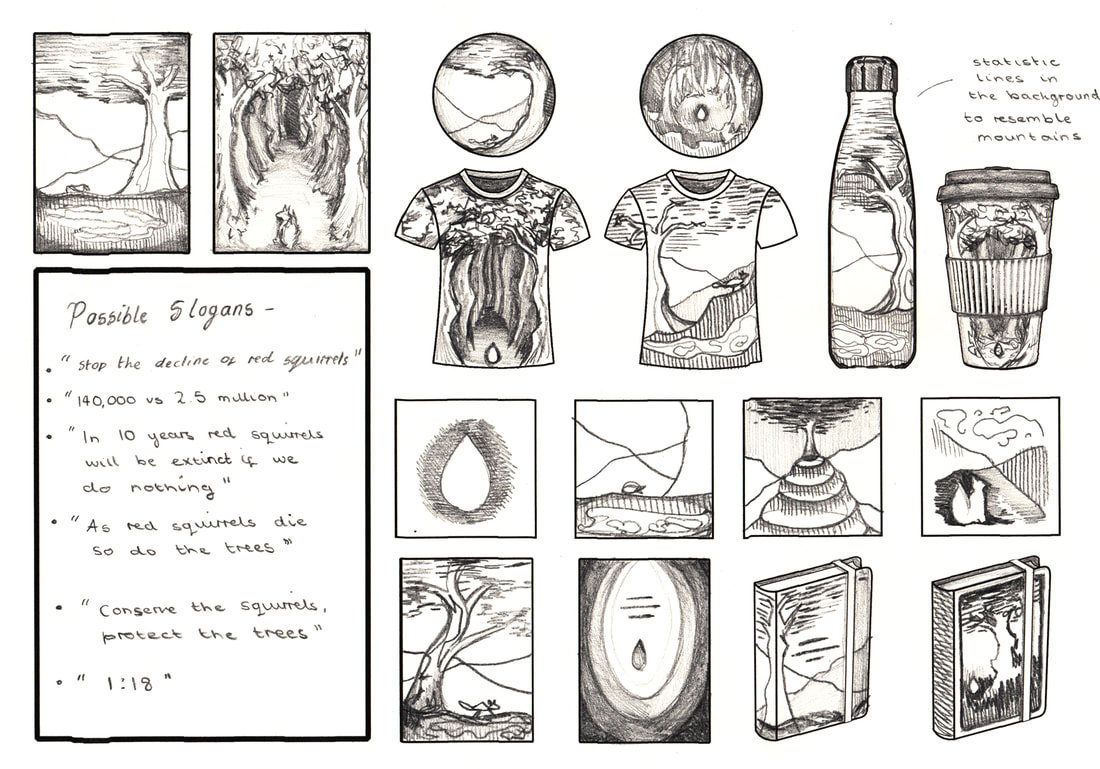 statistic
lines in
the background
to resemble
mountains
Possible Slogans -
• "stop the decline of red squirrels"
• "140,000 vs 2.5 million"
• "In 10 years red squirrels
will be extinct if we
do nothing"
• "As red squirrels die
so do the trees"
• "Conserve the squirrels,
protect the trees"
• "1:18"